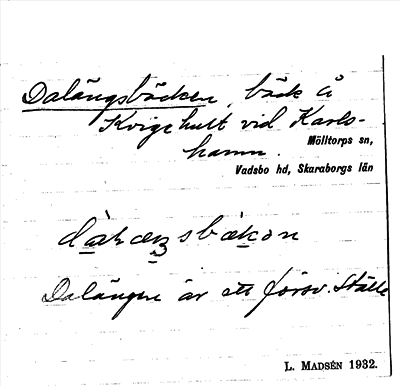 Dalängsbäcken, bäck å
Kvigehult vid Karls-
hamn.
Mölltorps sn,
Vadsbo hd, Skaraborgs län
Dalängen är ett försv. ställe
L. MADSÉN 1932.